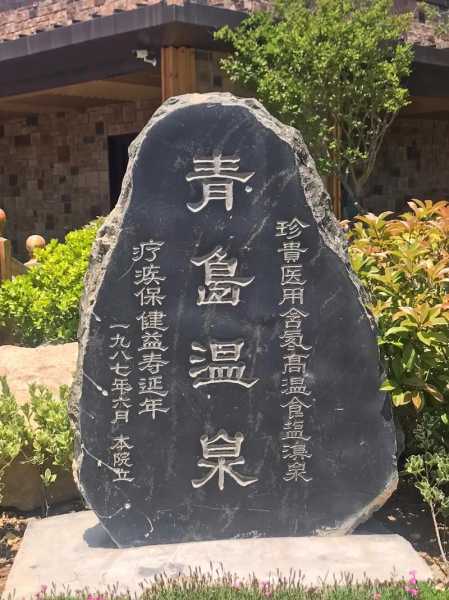 珍貴医用含氡高温食塩溴泉
青島温泉
疗疾保健益寿延年
一九八七年六月 本院立